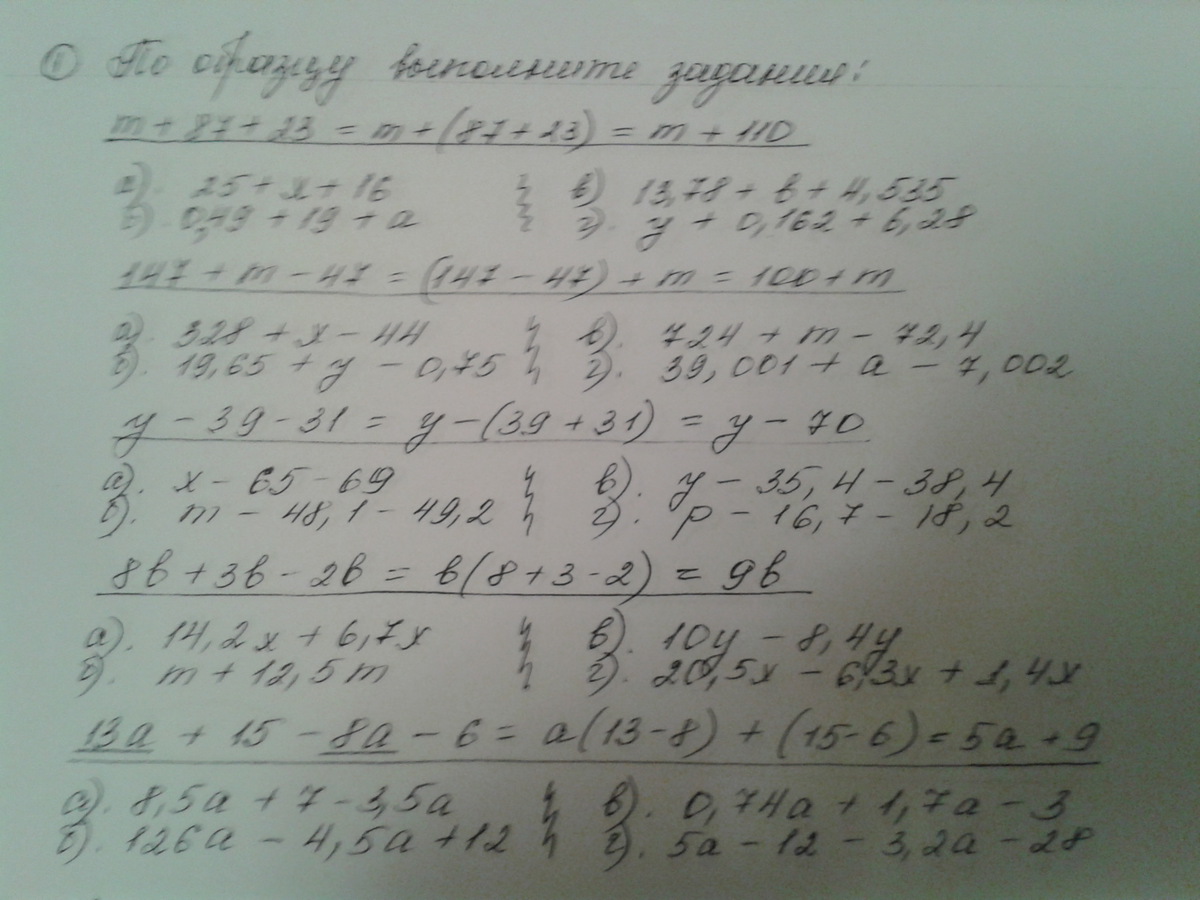 ① По образцу выполните задания:
m + 87 + 23 = m + (87 + 23) = m + 110
а). 25 + x + 16 в) 13,78 + b + 4,535
б). 0,49 + 19 + a г). y + 0,162 + 6,28
147 + m - 47 = (147 - 47) + m = 100 + m
а). 328 + x - 44 в). 724 + m - 72,4
б). 19,65 + y - 0,75 г). 39,001 + a - 7,002
y - 39 - 31 = y - (39 + 31) = y - 70
а). x - 65 - 69 в). y - 35,4 - 38,4
б). m - 48,1 - 49,2 г). p - 16,7 - 18,2
8b + 3b - 2b = b(8 + 3 - 2) = 9b
а). 14,2x + 6,7x в). 10y - 8,4y
б). m + 12,5m г). 20,5x - 6,3x + 1,4x
13a + 15 - 8a - 6 = a(13 - 8) + (15 - 6) = 5a + 9
а). 8,5a + 7 - 3,5a в). 0,74a + 1,7a - 3
б). 126a - 4,5a + 12 г). 5a - 12 - 3,2a - 28